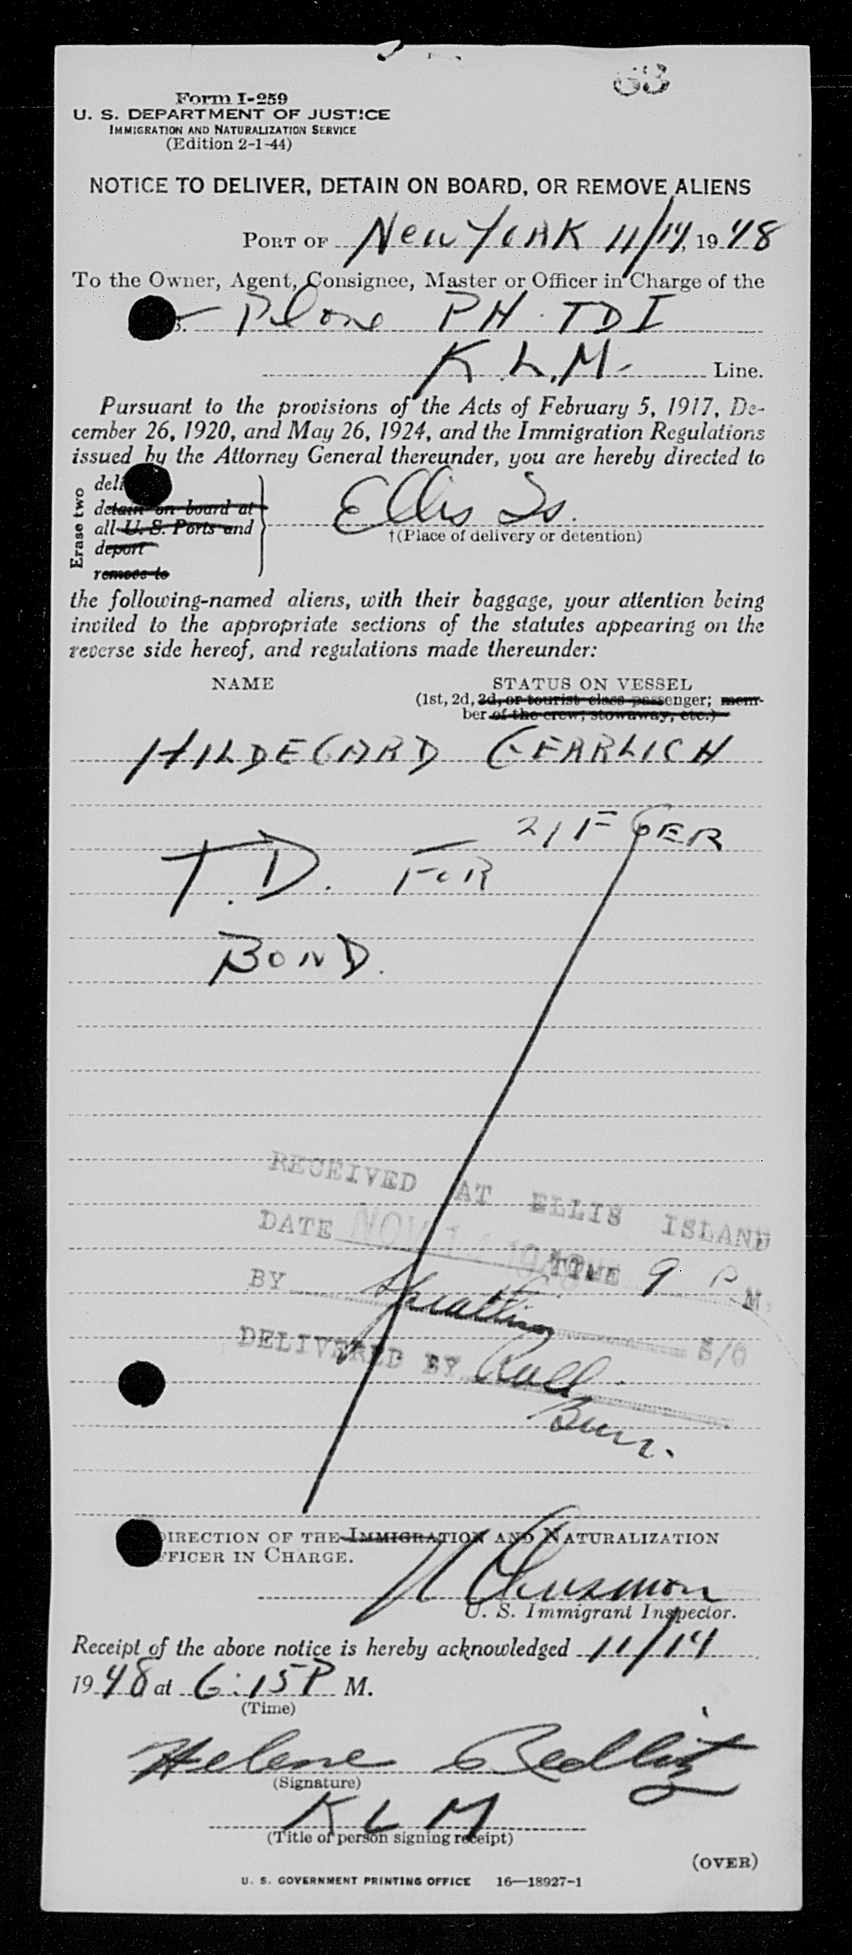 63
Form I-259
U. S. DEPARTMENT OF JUSTICE
IMMIGRATION AND NATURALIZATION SERVICE
(Edition 2-1-44)
NOTICE TO DELIVER, DETAIN ON BOARD, OR REMOVE ALIENS
PORT OF New YORK 11/14, 1948
To the Owner, Agent, Consignee, Master or Officer in Charge of the
S. Plane PH-TDI
K.L.M. Line.
Pursuant to the provisions of the Acts of February 5, 1917, De-
cember 26, 1920, and May 26, 1924, and the Immigration Regulations
issued by the Attorney General thereunder, you are hereby directed to
Erase two
deli
detain on board at
all U. S. Ports and
deport
remove to
Ellis Is.
†(Place of delivery or detention)
the following-named aliens, with their baggage, your attention being
invited to the appropriate sections of the statutes appearing on the
reverse side hereof, and regulations made thereunder:
NAME STATUS ON VESSEL
(1st, 2d, 3d, or tourist class passenger; mem-
ber of the crew; stowaway, etc.)
HILDEGARD GEARLICH
21 F GER
T.D. FOR
BOND.
RECEIVED AT ELLIS ISLAND
DATE NOV 14 1948 TIME 9 P M.
BY S/O
DELIVERED BY
DIRECTION OF THE IMMIGRATION AND NATURALIZATION
OFFICER IN CHARGE.
U. S. Immigrant Inspector.
Receipt of the above notice is hereby acknowledged 11/14
1948 at 6:15 P M.
(Time)
Helene Redlitz
(Signature)
KLM
(Title of person signing receipt)
(OVER)
U. S. GOVERNMENT PRINTING OFFICE 16—18927-1